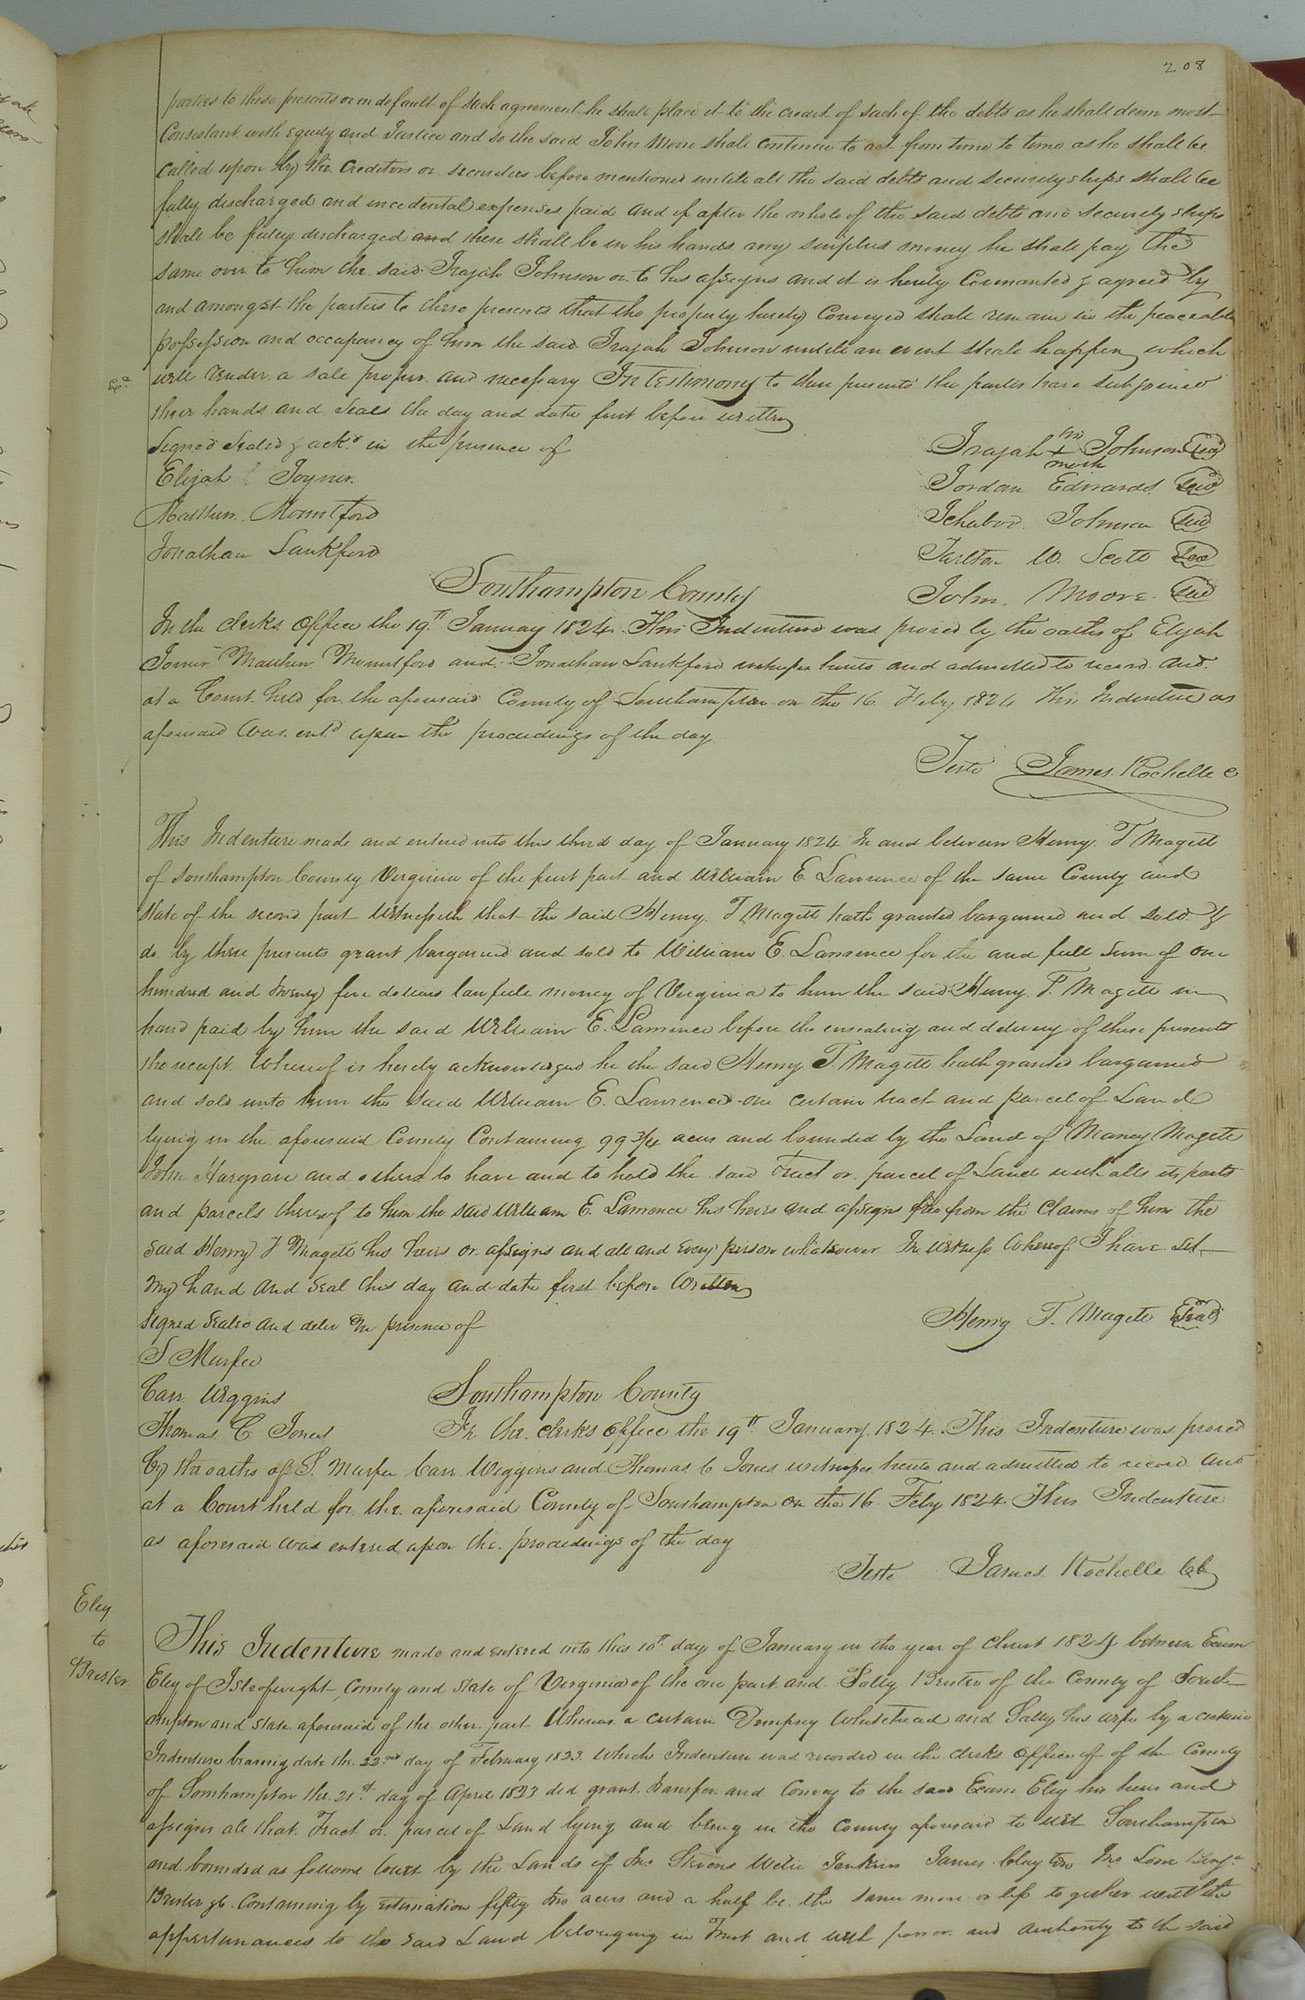 208
parties to these presents or in default of such agreement he shall place it to the credit of such of the debts as he shall deem most
Consistant with equity and Justice and so the said John Moore shall continue to act from time to time as he shall be
Called upon by the Creditors or securities before mentioned untill all the said debts and securityships shall be
fully discharged and incedental expenses paid and if after the whole of the said debts and securityships
shall be fully discharged and there shall be in his hands any surplus money he shall pay the
same over to him the said Trajah Johnson or to his assigns and it is hereby Covenanted & agreed by
and amongst the parties to these presents that the property hereby Conveyed shall remain in the peaceable
possession and occupancy of him the said Trajah Johnson untill an event shall happen which
will render a sale proper and necessary In testimony to these presents the parties have subjoined
their hands and Seals the day and date first before written
Signed Sealed & ackd in the presence of
Elijah Joyner
Matthew Mountford
Jonathan Lankford
Trajah his + mark Johnson Seal
Jordan Edwards Seal
Ichabod Johnson Seal
Tarlton W. Scott Seal
John Moore Seal
Southampton County
In the Clerks Office the 19th January 1824 This Indenture was proved by the oaths of Elijah
Joiner Matthew Mountford and Jonathan Lankford witnesses hereto and admitted to record and
at a Court held for the aforesaid County of Southampton on the 16 Feby 1824 This Indenture as
aforesaid was entd upon the proceedings of the day
Teste James Rochelle C
This Indenture made and entered into this third day of January 1824 In and between Henry T Magett
of Southampton County Virginia of the first part and William E Lawrence of the same County and
State of the second part Witnesseth that the said Henry T Magett hath granted bargained and sold &
do by these presents grant bargained and sold to William E. Lawrence for the and full sum of one
hundred and twenty five dollars lawfull money of Virginia to him the said Henry T. Magett in
hand paid by him the said William E. Lawrence before the ensealing and delivery of these presents
the receipt Whereof is hereby acknowledged he the said Henry T. Magett hath granted bargained
and sold unto him the said William E. Lawrence one certain tract and parcel of Land
lying in the aforesaid County Containing 99 3/4 acres and bounded by the Land of Maney Magett
John Hargrave and others to have and to hold the said Tract or parcel of Land with alls its parts
and parcels thereof to him the said William E. Lawrence his heirs and assigns free from the Claims of him the
said Henry T Magett his heirs or assigns and all and every person whatsoever In witness Whereof I have set
my hand and seal this day and date first before Written
Signed Sealed and deler In presence of
S Murfee
Carr Wiggins
Thomas C Jones
Henry T. Magett Seal
Southampton County
In the Clerks Office the 19th January 1824. This Indenture was proved
By the oaths of S. Murfee Carr Wiggins and Thomas C Jones witnesses hereto and admitted to record and
at a Court held for the aforesaid County of Southampton on the 16 Feby 1824 This Indenture
as aforesaid was entered upon the proceedings of the day
Teste James Rochelle
Eley
to
Brister
This Indenture made and entered into this 10th day of January in the year of Christ 1824 between Exum
Eley of Isle of wight County and State of Virginia of the one part and Polly Brister of the County of South
ampton and State aforesaid of the other part Whereas a certain Dempsey Whitehead and Sally his wife by a certain
Indenture bearing date the 22nd day of February 1823 Which Indenture was recorded in the Clerks Office of of the County
of Southampton the 21st day of April 1823 did grant transfer and Convey to the said Exum Eley his heirs and
assigns all that Tract or parcel of Land lying and being in the County aforesaid to wit Southampton
and bounded as follows by the Lands of Jno Stevens Jenkins James Clayton Jno
Brister &c Containing by estimation fifty two acres and a half be the same more or less together with the
appertunances to the said Land belonging in Trust and with power and authority to the said